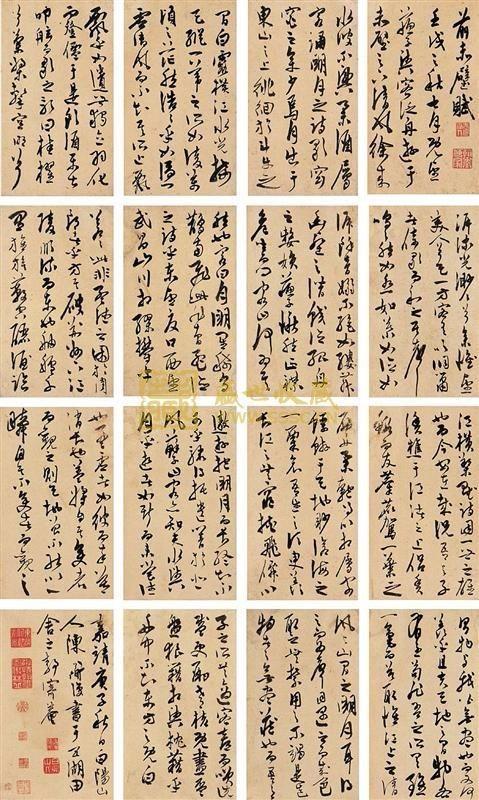 前赤壁賦
壬戌之秋七月既望
蘇子與客泛舟遊于
赤壁之下清風徐來
水波不興舉酒屬
客誦明月之詩歌窈
窕之章少焉月出于
東山之上徘徊於斗牛之
間白露橫江水光接
天縱一葦之所如凌萬
頃之茫然浩浩乎如馮
虛御風而不知其所止飄
飄乎如遺世獨立羽化
而登僊於是飲酒樂甚
扣舷而歌之歌曰桂櫂
兮蘭槳擊空明兮
泝流光渺渺兮予懷望
美人兮天一方客有吹洞簫
者倚歌而和之其聲
嗚嗚然如怨如慕如泣如
訴餘音嫋嫋不絕如縷舞
幽壑之潛蛟泣孤舟
之嫠婦蘇子愀然正襟
危坐而問客曰何為其
然也客曰月明星稀烏
鵲南飛此非曹孟德
之詩乎東望夏口西望
武昌山川相繆鬱乎
蒼蒼此非孟德之困於周
郎者乎方其破荊州下江
陵順流而東也舳艫千
里旌旗蔽空釃酒臨
江橫槊賦詩固一世之雄
也而今安在哉況吾與子
漁樵于江渚之上侶魚
鰕而友麋鹿駕一葉之
扁舟舉匏樽以相屬寄
蜉蝣于天地渺滄海之
一粟哀吾生之須臾羨
長江之無窮挾飛僊以
遨遊抱明月而長終知不
可乎驟得托遺響於悲
風蘇子曰客亦知夫水與
月乎逝者如斯而未嘗往
也盈虛者如彼而卒莫
消長也蓋將自其變者
而觀之則天地曾不能以一
瞬自其不變者而觀之
則物與我皆無盡也而又何
羨乎且夫天地之間物各
有主苟非吾之所有雖
一毫而莫取惟江上之清
風與山間之明月耳得
之而為聲目遇之成色
取之無禁用之不竭是造
物者之無盡藏也而吾與
子之所共適客喜而笑洗
盞更酌肴核既盡杯
盤狼籍相與枕藉乎
舟中不知東方之既白
嘉靖庚子秋日白陽山
人陳淳復書于五湖田
舍之
盛世收藏